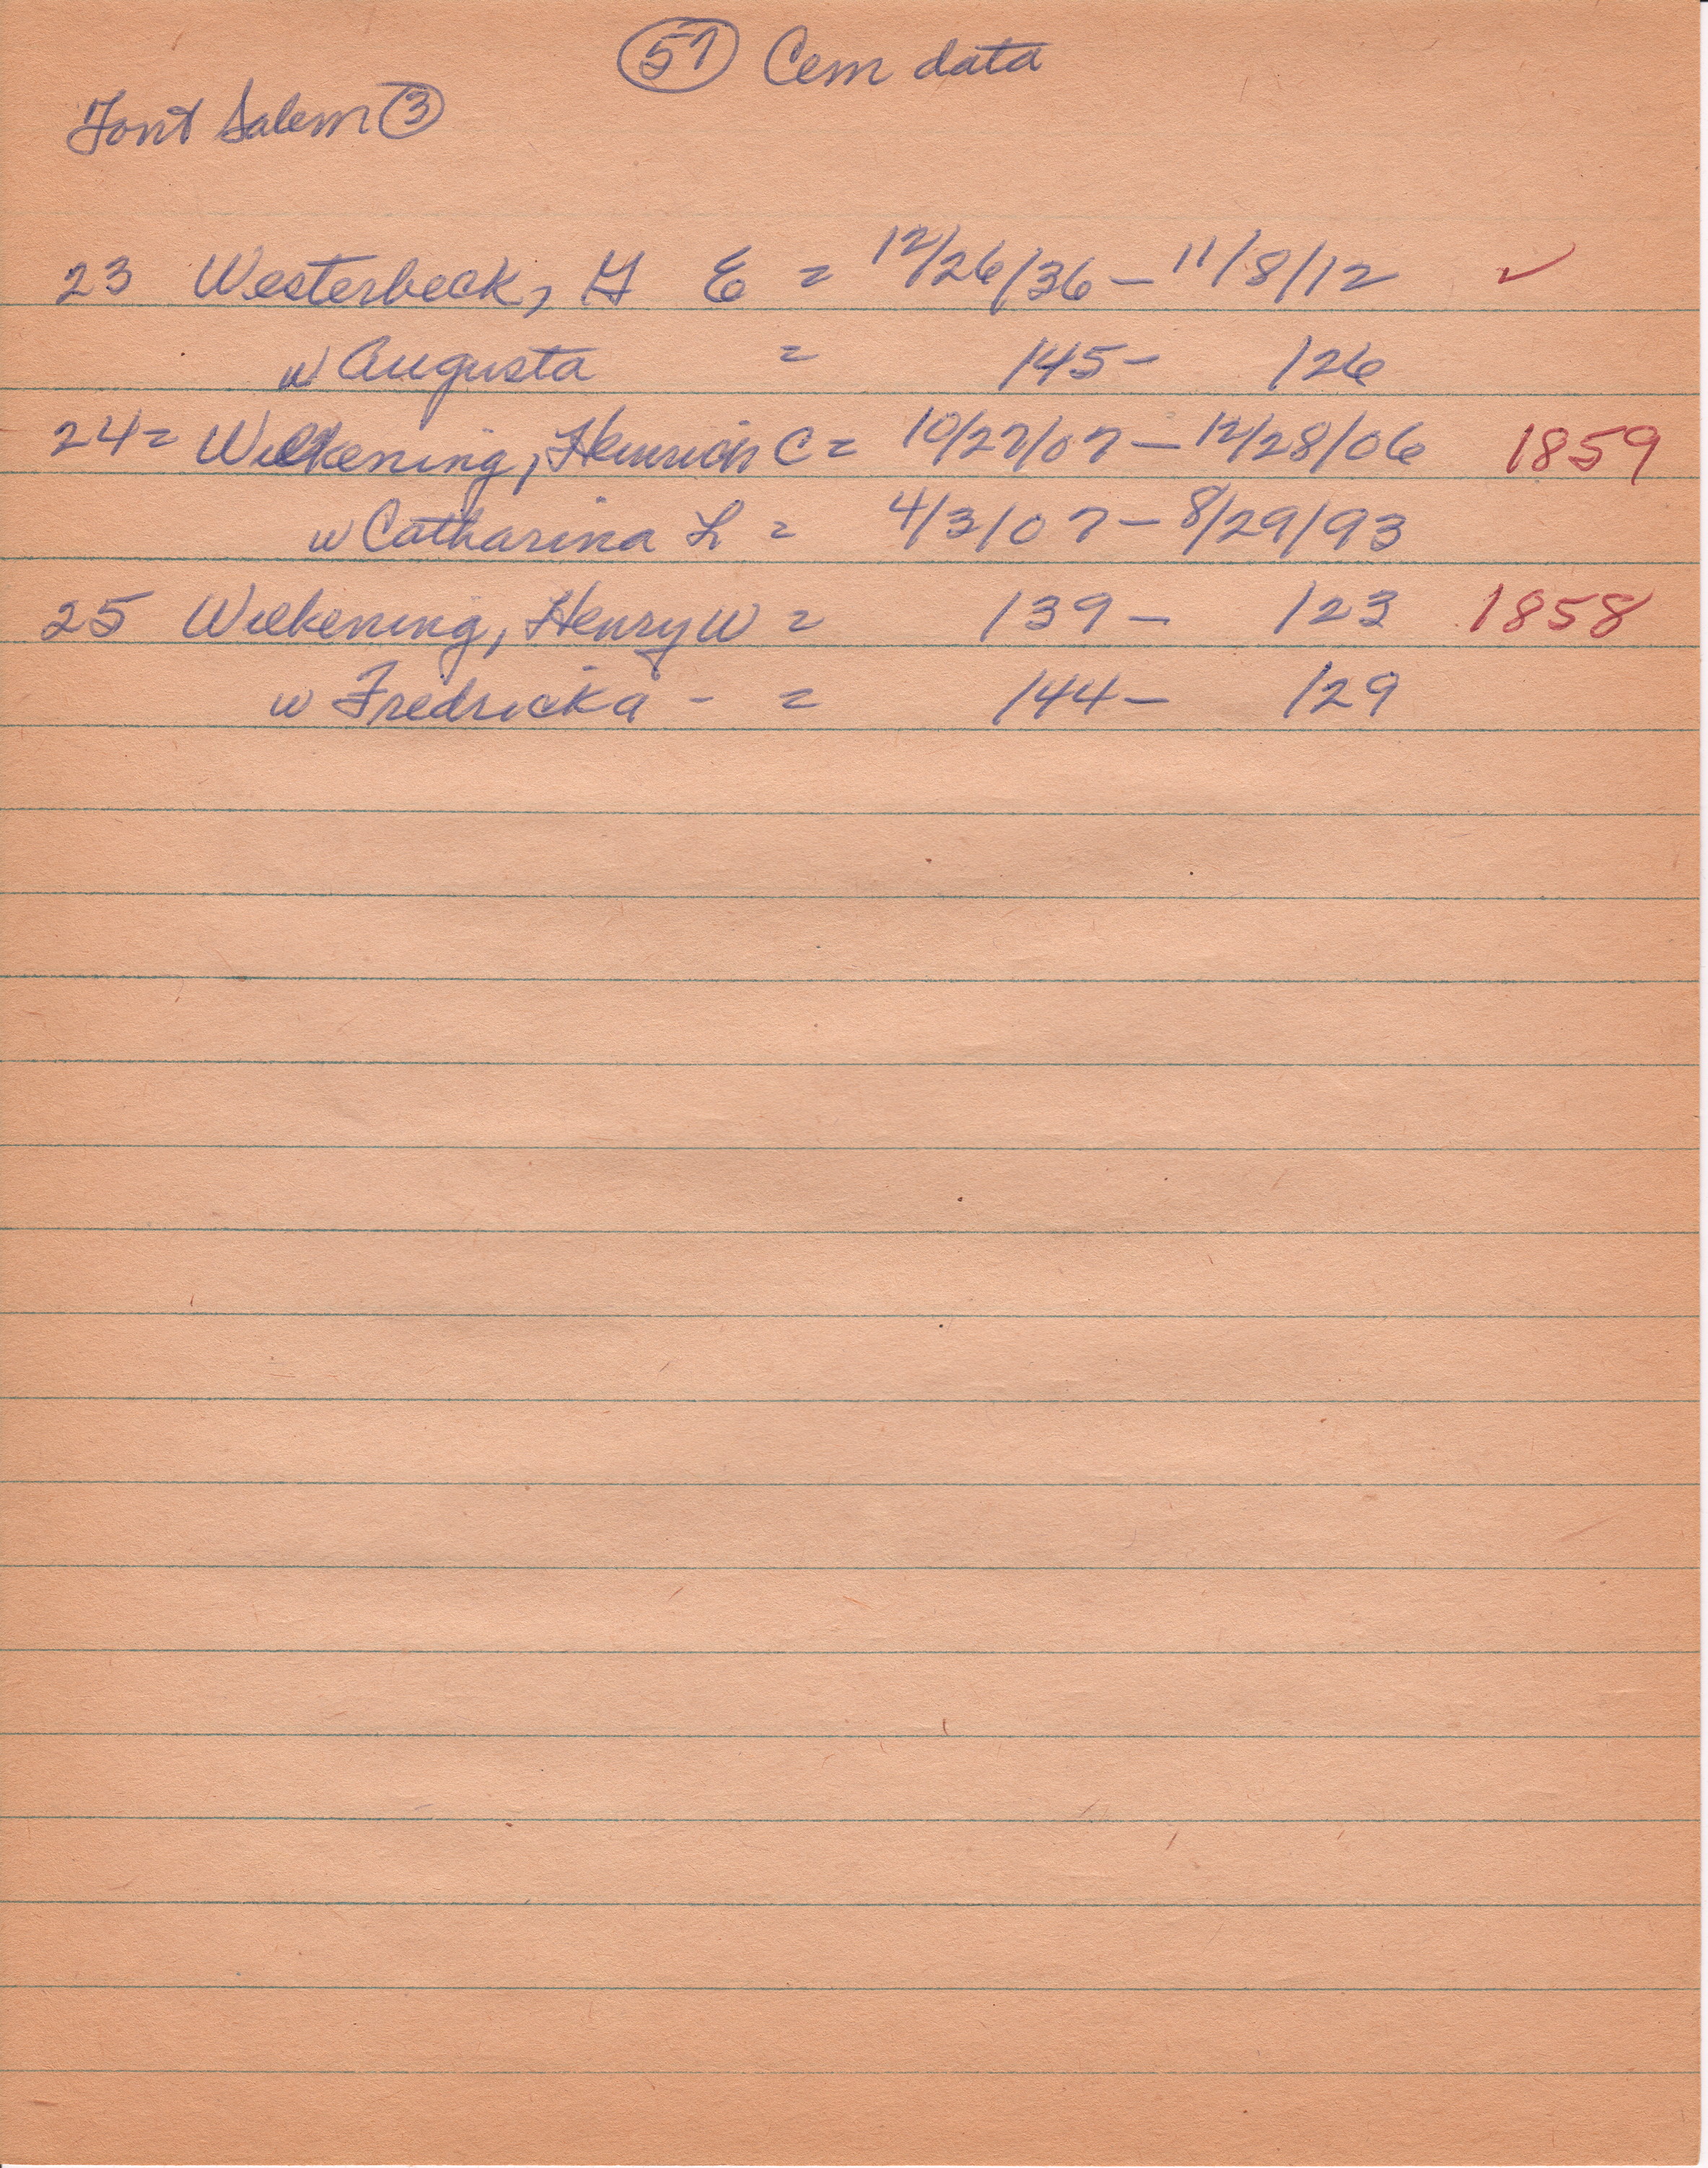 57 Cem data
Font Salem 3
23 Westerbeck, H E = 12/26/36 - 11/8/12 ✓
w Augusta = /45 - /26
24 = Wilkening, Heinrich C = 10/27/07 - 12/28/06 1859
w Catharina L = 4/3/07 - 8/29/93
25 Wilkening, Henry W = /39 - /23 1858
w Fredricka - = /44 - /29